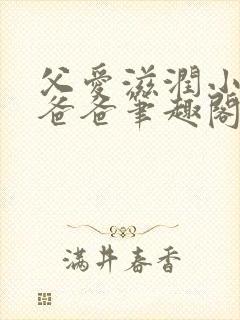 父愛滋潤小
爸爸筆趣閣
滿井春香